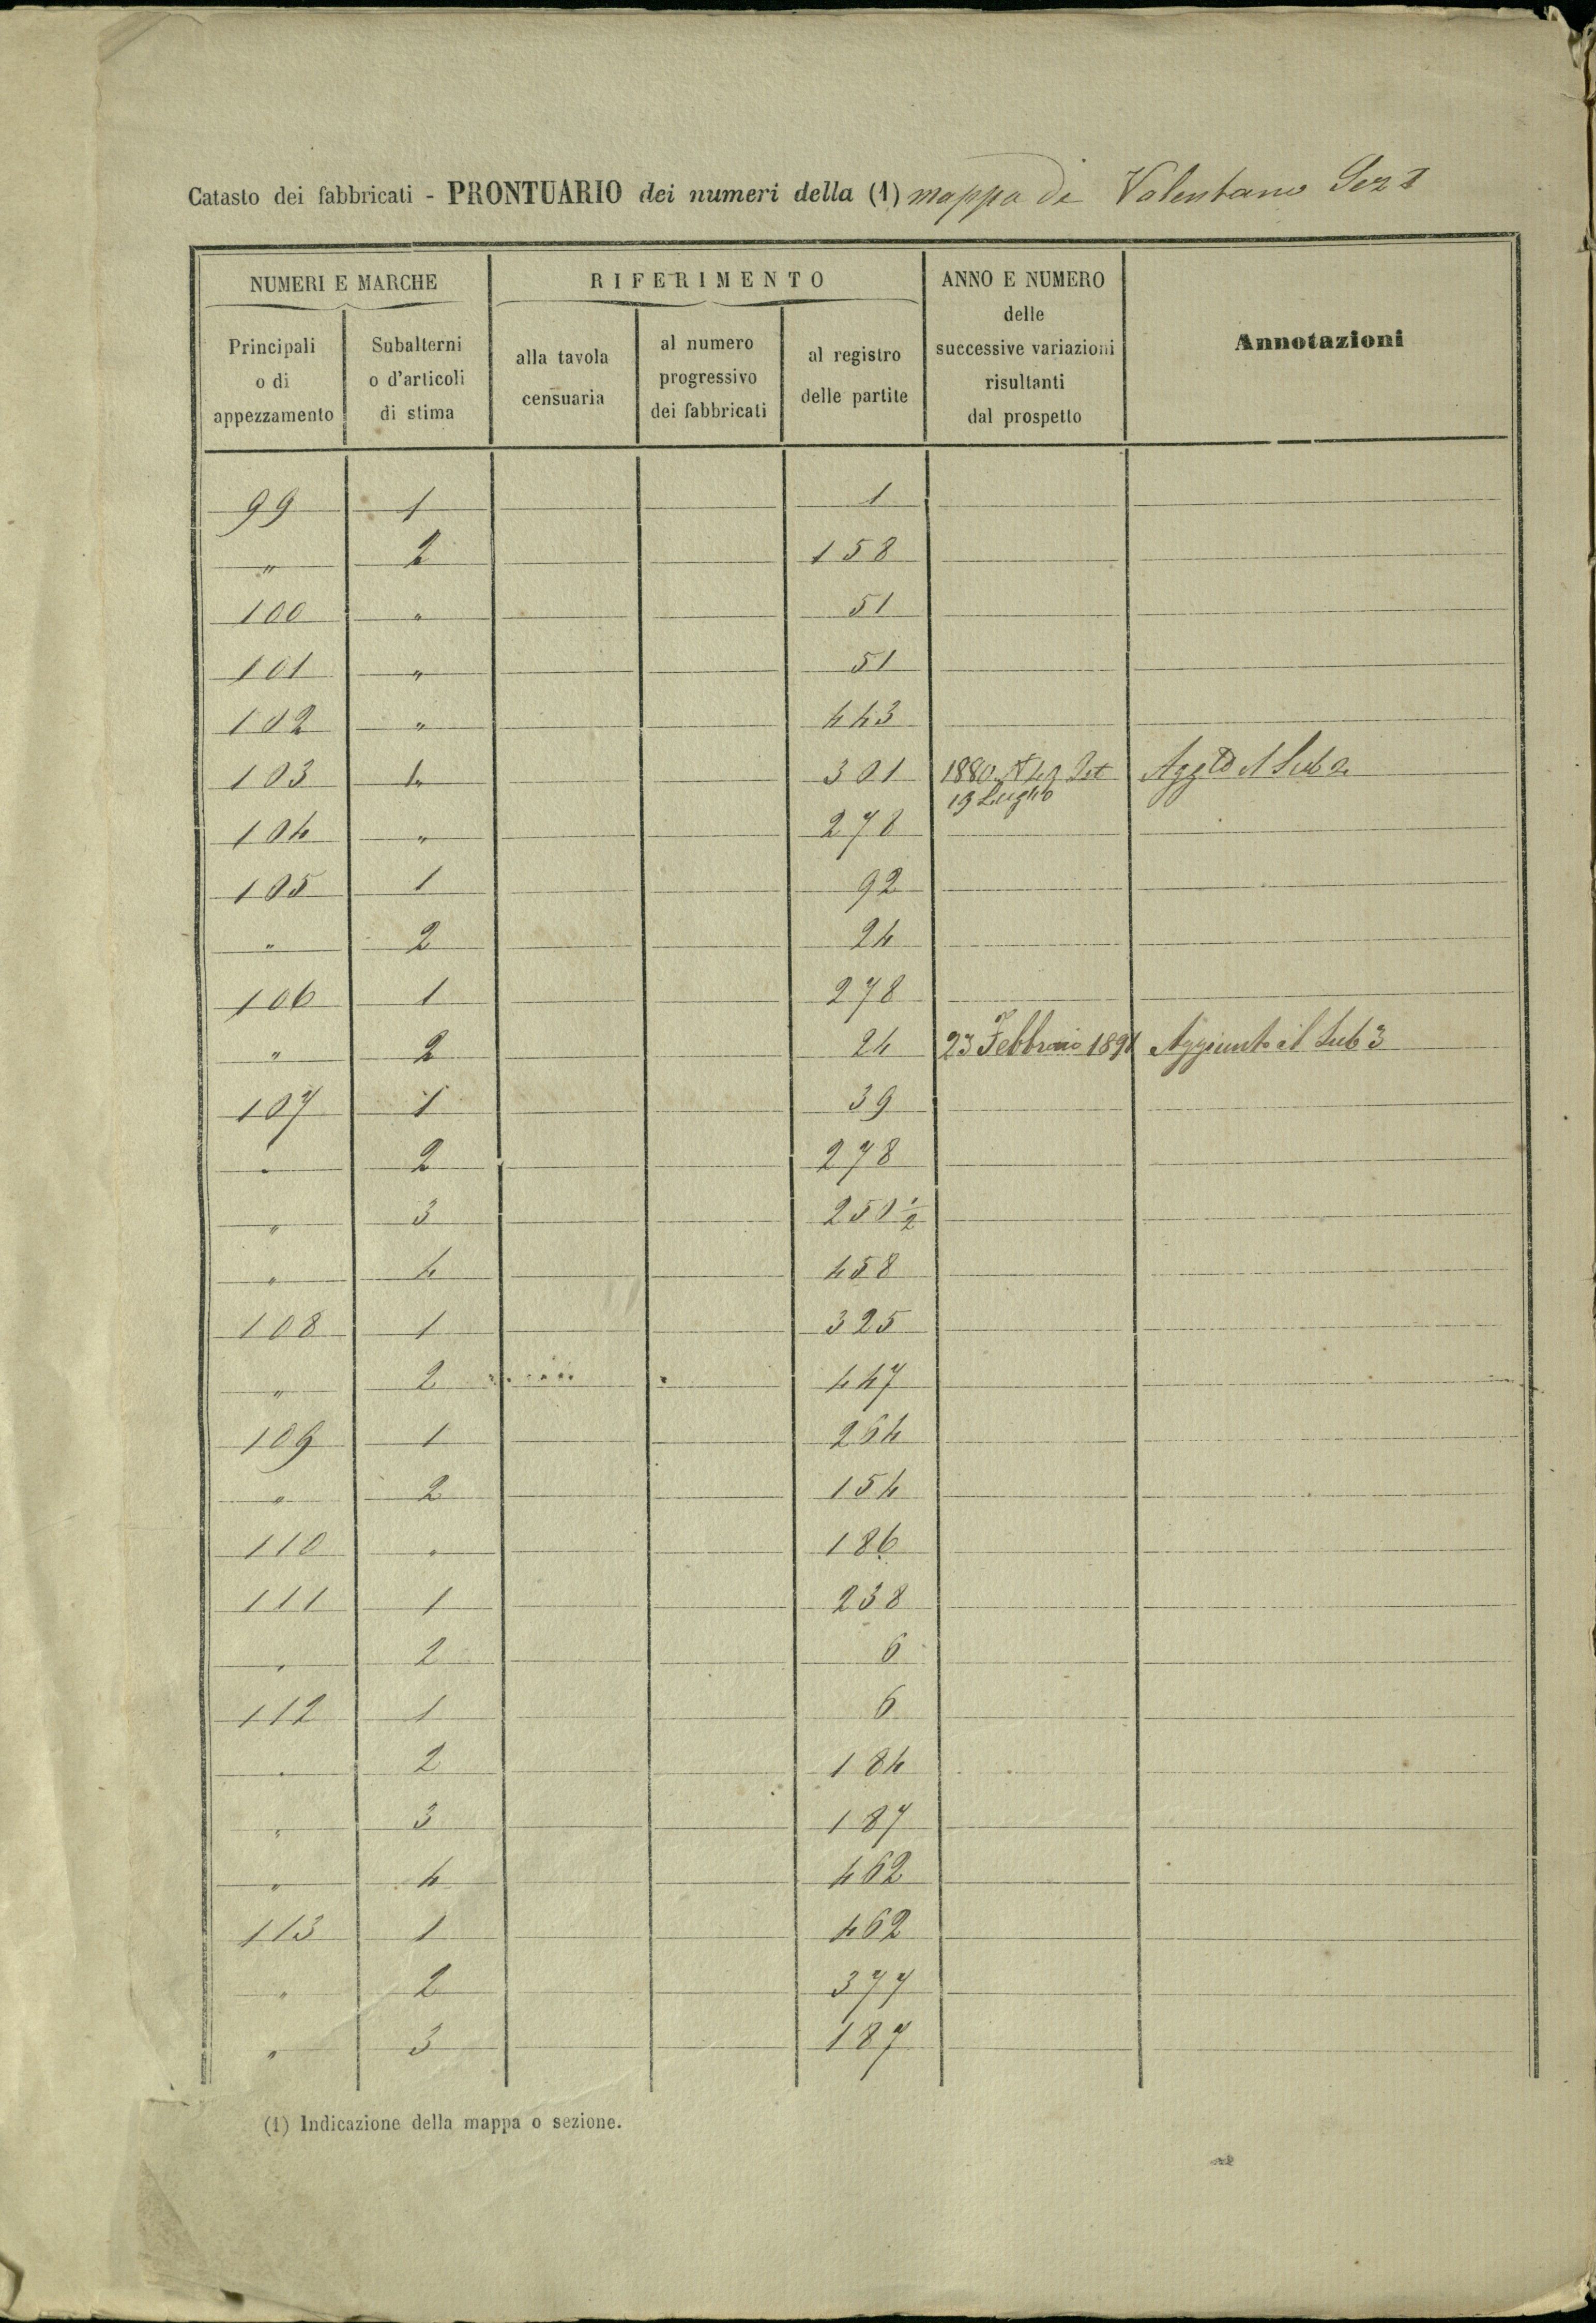 Catasto dei fabbricati - PRONTUARIO dei numeri della (1) mappa di Valentano Sez 1
NUMERI E MARCHE
RIFERIMENTO
ANNO E NUMERO
delle
successive variazioni
risultanti
dal prospetto
Annotazioni
Principali
o di
appezzamento
Subalterni
o d'articoli
di stima
alla tavola
censuaria
al numero
progressivo
dei fabbricati
al registro
delle partite
99 1 1
" 2 158
100 " 51
101 " 51
102 " 443
103 1 301 1880 Agg to il Sub 2
19 Luglio
104 " 278
105 1 92
" 2 24
106 1 278
" 2 24 23 Febbraio 1891 Aggiunto il Sub 3
107 1 39
" 2 278
" 3 250 1/2
" 4 458
108 1 325
" 2 447
109 1 264
" 2 154
110 " 186
111 1 238
" 2 6
112 1 6
" 2 184
" 3 187
" 4 462
113 1 462
" 2 377
" 3 187
(1) Indicazione della mappa o sezione.